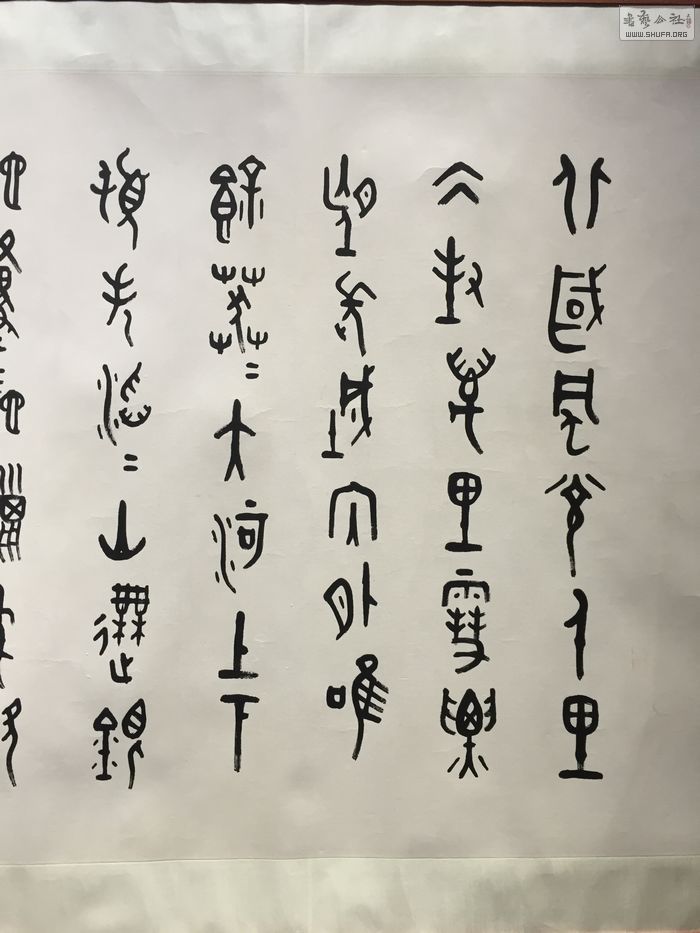 書藝公社
WWW.SHUFA.ORG
北國風光千里
冰封萬里雪飄
望長城內外唯
餘莽〻大河上下
頓失滔〻山舞銀